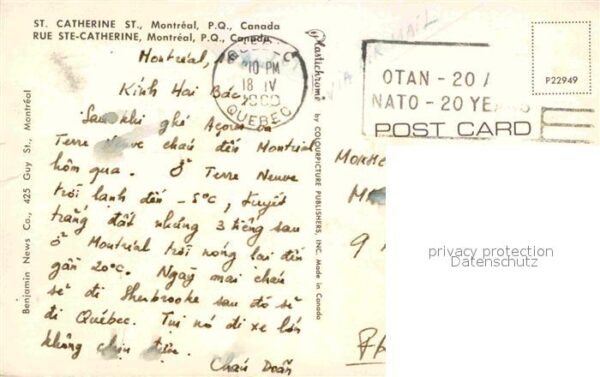 ST. CATHERINE ST., Montréal, P.Q., Canada
RUE STE-CATHERINE, Montréal, P.Q., Canada
Montréal, 18
Kính Hai Bác,
Sau khi ghé Açores và
Terre Neuve cháu đến Montréal
hôm qua. Ở Terre Neuve
trời lạnh đến -5°C, tuyết
trắng đất nhưng 3 tiếng sau
ở Montréal trời nóng lại đến
gần 20°C. Ngày mai cháu
sẽ đi Sherbrooke sau đó sẽ
đi Québec. Tụi nó đi xe lớn
không chịu
Cháu Doãn
Benjamin News Co., 425 Guy St., Montréal
Plastichrome ® by COLOURPICTURE PUBLISHERS, INC. Made in Canada
PM
18 IV
QUEBEC
VIA AIR MAIL
OTAN - 20 A
NATO - 20 YEARS
POST CARD
P22949
9
privacy protection
Datenschutz